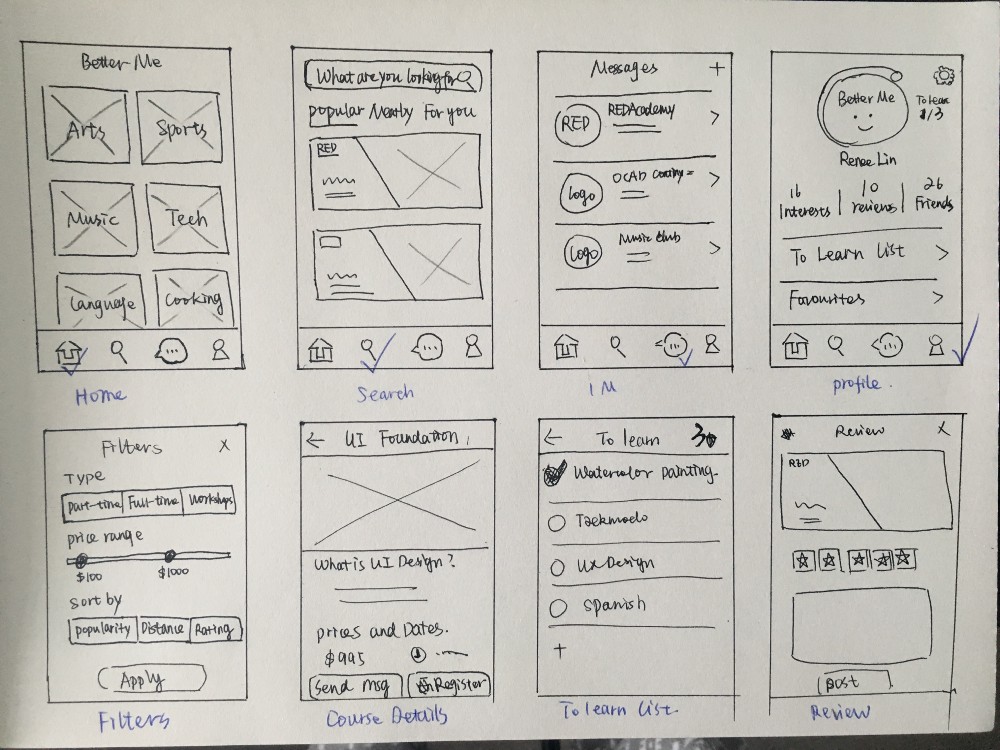 Better Me
Arts
Sports
Music
Tech
Language
Cooking
Home
What are you looking for
popular Nearby For you
RED
Search
Messages +
RED
REDAcademy
Logo
OCAD
Logo
Music Club
IM
Better Me
To learn
1/3
Renee Lin
16
Interests
10
reviews
26
Friends
To Learn List >
Favourites >
profile.
Filters X
Type
part-time Full-time Workshops
price range
$100 $1000
Sort by
popularity Distance Rating
Apply
Filters
← UI Foundation
What is UI Design?
prices and Dates.
$995
Send msg
Register
Course Details
← To learn 3
Watercolor painting
Taekmodo
UX Design
Spanish
+
To learn List
Review X
RED
post
Review